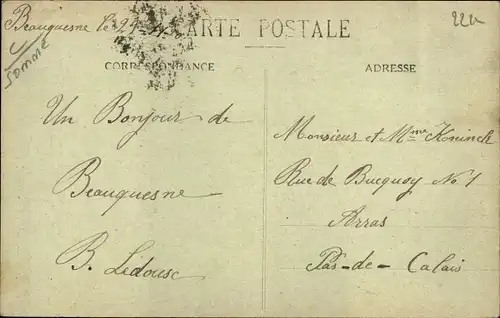 Beauquesne le 29
CARTE POSTALE
22u
Somme
CORRESPONDANCE
ADRESSE
Un Bonjour de
Beauquesne
B. Ledouse
Monsieur et Mme Koninck
Rue de Bucquoy No 1
Arras
Pas-de-Calais